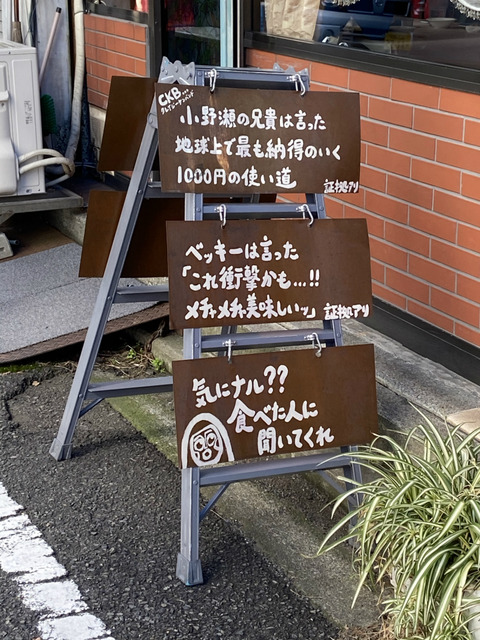 CKB...
クレイジーケンバンド
小野瀬の兄貴は言った
地球上で最も納得のいく
1000円の使い道
証拠アリ
ベッキーは言った
「これ衝撃かも...!!
メチャメチャ美味しいッ」 証拠アリ
気にナル??
食べた人に
聞いてくれ